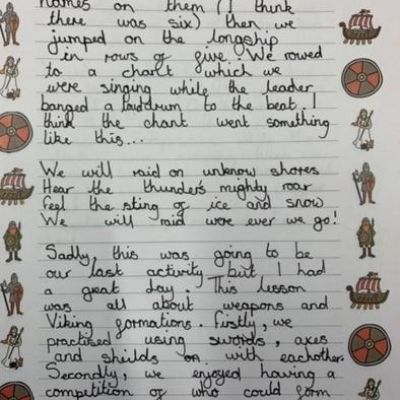 names on them (I think
there was six) then we
jumped on the longship
in rows of five. We rowed
to a chant which we
were singing while the leader
banged a loud drum to the beat. I
think the chant went something
like this...
We will raid on unknow shores
Hear the thunder's mighty roar
Feel the sting of ice and snow
We will raid were ever we go!
Sadly, this was going to be
our last activity but I had
a great day. This lesson
was all about weapons and
Viking formations. Firstly, we
practised using swords, axes
and shields on with eachother.
Secondly, we enjoyed having a
competition of who could form